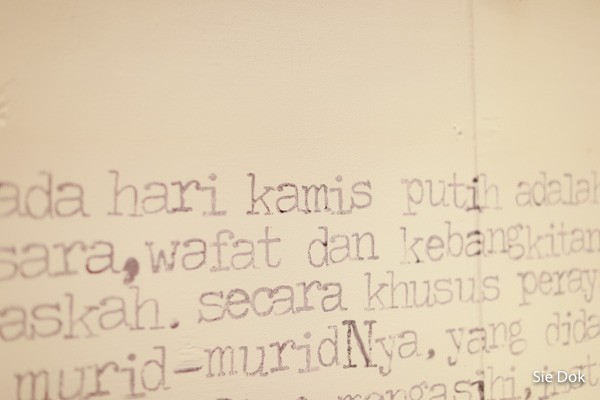 ada hari kamis putih adalah
sara, wafat dan kebangkitan
askah. secara khusus peray
murid-muridNya, yang dida
mengasihi,
Sie Dok